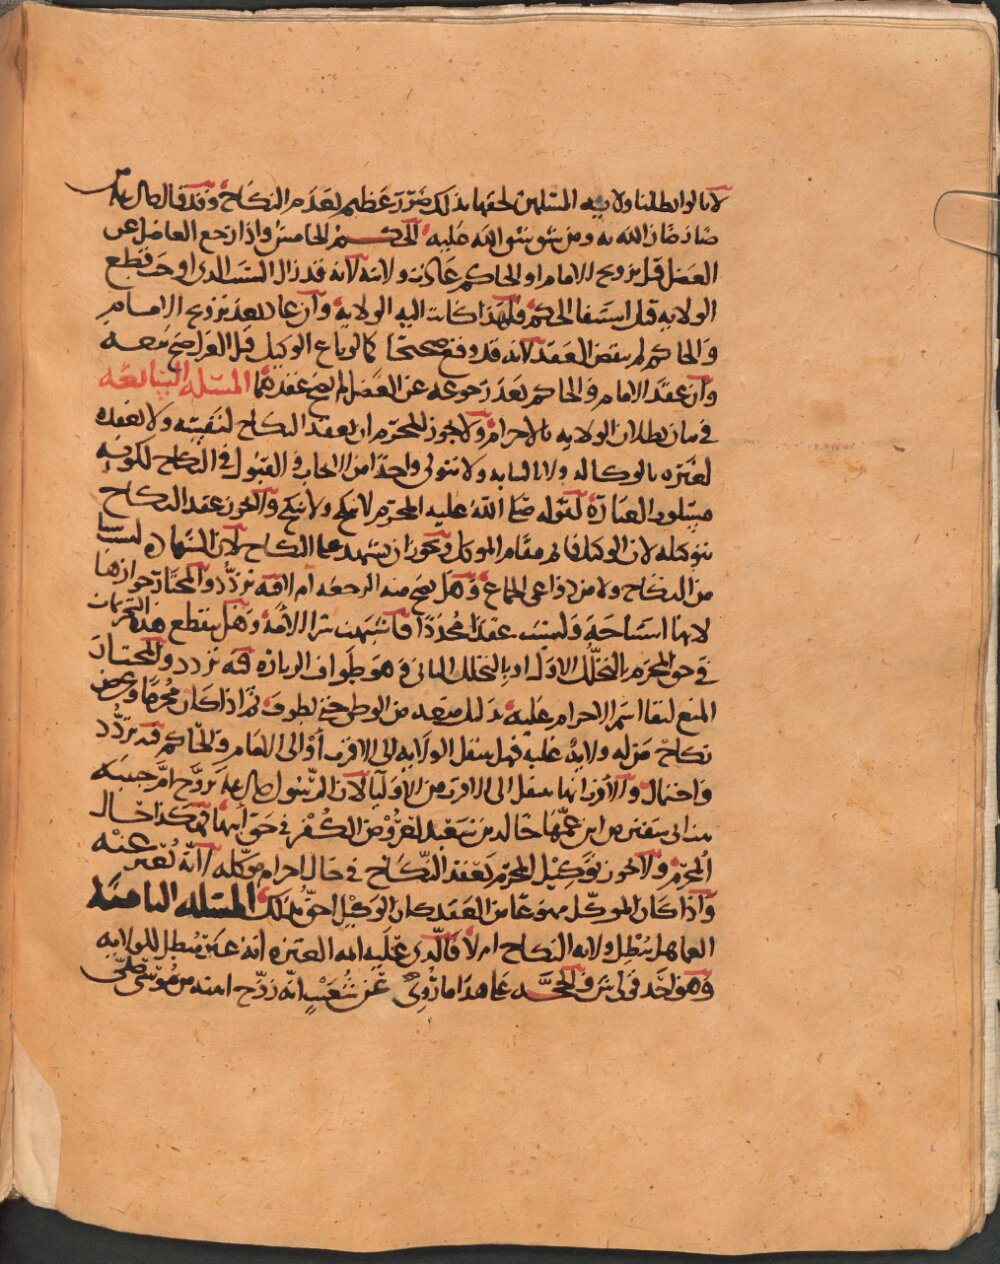 لانا لو ابطلنا ولايه المسلمين لحقها بذلك ضرر عظيم لعدم النكاح وقد قال صلى الله عليه
ضار ضار الله به ومن شق شق الله عليه الحكم الخامس واذا رجع العاضل عن
العضل قبل تزويج الامام او الحاكم عادت ولايته لانه قد زال السبب الذي اوجب قطع
الولايه قبل استيفا الحكم فلهذا كانت اليه الولايه وان عاد بعد تزويج الامام
والحاكم لم ينقض العقد لانه قد وقع صحيحا كما لو باع الوكيل قبل العزل صح بيعه
وان عقد الامام والحاكم بعد رجوعه عن العضل لم يصح عقدهما المسئله السابعه
في بيان بطلان الولايه بالاحرام ولا يجوز للمحرم ان يعقد النكاح لنفسه ولا يعقده
لغيره بالوكاله ولا بالنيابه ولا يتولى واحدا من الايجاب والقبول في النكاح لكونه
مسلوب العبارة لقوله صلى الله عليه المحرم لا ينكح ولا ينكح ولا يجوز عقد النكاح
بتوكيله لان الوكيل قائم مقام الموكل ويجوز ان يشهد على النكاح لان الشهادة ليست
من النكاح ولا من دواعي الجماع وهل يصح منه الرجعه ام لا فيه تردد والمختار جوازها
لانها استباحة وليست عقدا مجددا فاشبهت شرا الامة وهل ينقطع هذا التحريمات
في حق المحرم بالتحلل الاول او بالتحلل الثاني وهو طواف الزيارة فيه تردد والمختار
المنع لبقا اسم الاحرام عليه بدليل منعه من الوطي حتى يطوف ثم اذا كان محرما وعرض
نكاح من له ولاية عليه فهل ينقل الولايه الى الاقرب أو الى الامام والحاكم فيه تردد
واحتمال والاقرب انها تنتقل الى الاقرب من الاوليا لان الرسول صلى الله عليه تزوج ام حبيبه
بنت ابي سفين من ابن عمها خالد بن سعيد لعروض الكفر في حق ابيها فهكذا حال
المحرم ولا يجوز لوكيل المحرم بعقد النكاح في حال احرام موكله لانه يعبر عنه
واذا كان الموكل ممنوعا من العقد كان الوكيل احق بذلك المسئله الثامنة
العاهل يبطل ولايه النكاح ام لا فالذي عليه ائمه العترة انه غير مبطل للولايه
وهو احد قولي ش والحجه على هذا ما روي عن شعيب انه زوج ابنته من موسى صلى